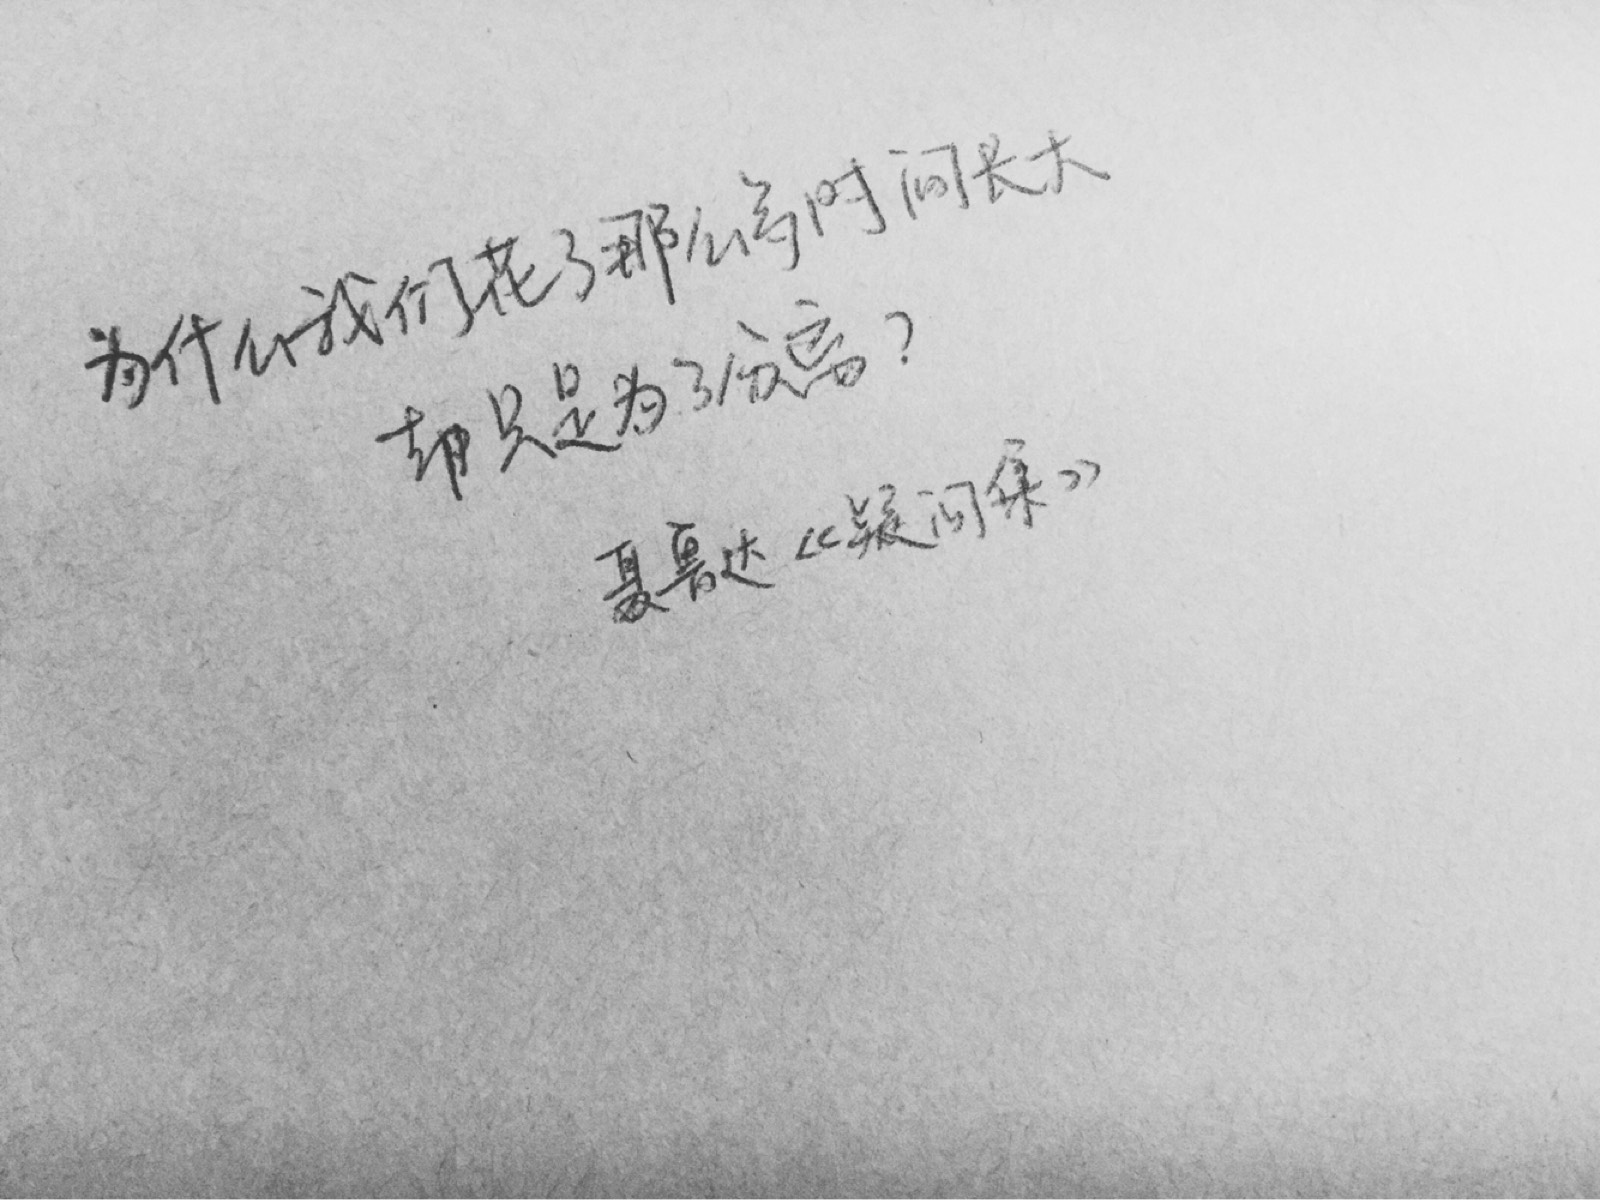 为什么我们花了那么多时间长大
却只是为了分离？
聂鲁达《疑问集》